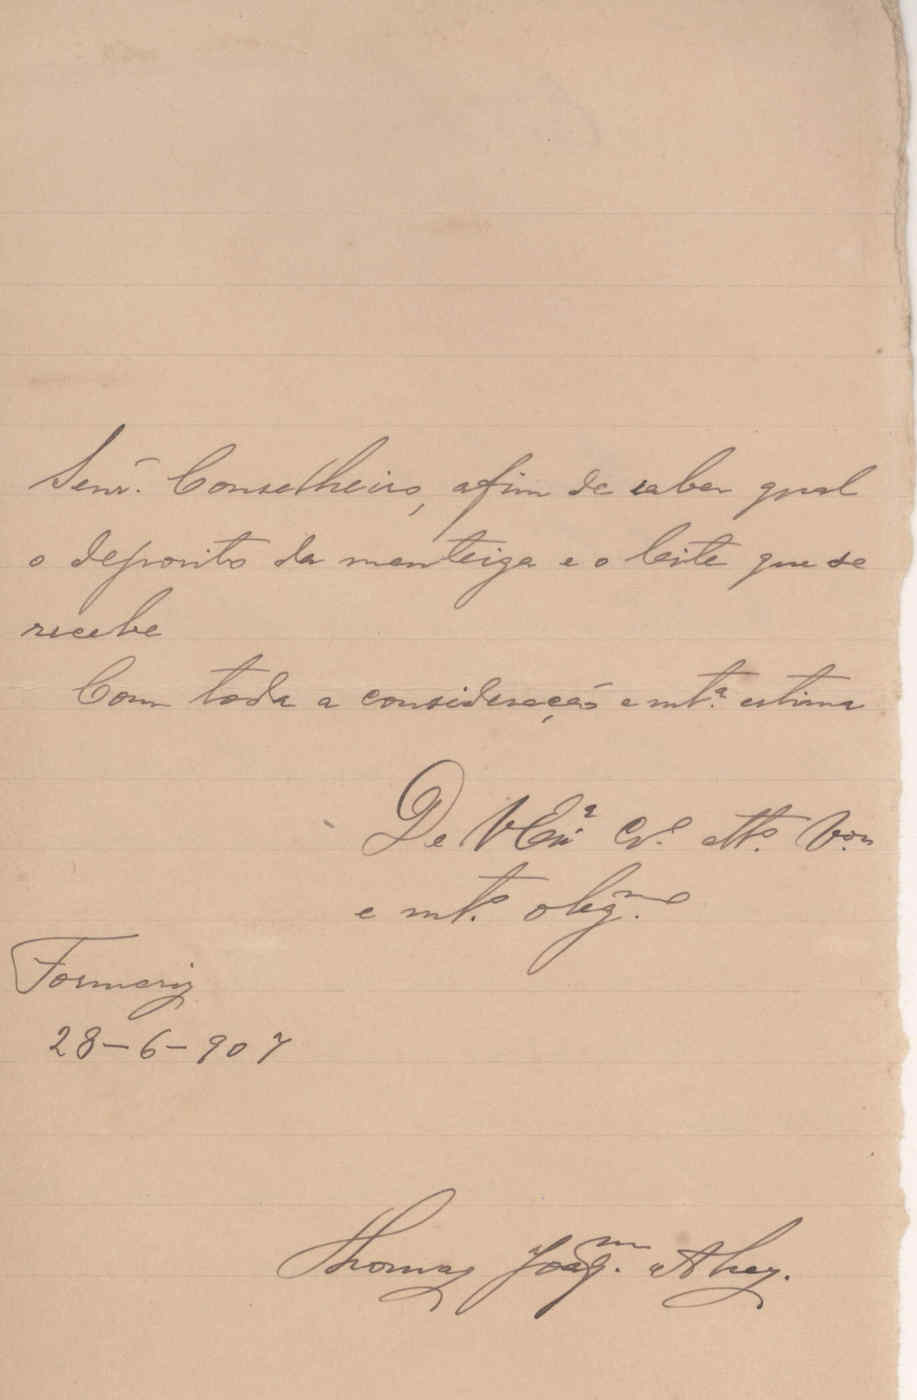 Senr. Conselheiro, afim de saber qual
o deposito da manteiga e o leite que se
recebe
Com toda a consideração e mt.ª estima
De V Exª Cr.º Att.º V.or
e mt.º obgmo
Formariz
28-6-907
Thomaz Joaqm.